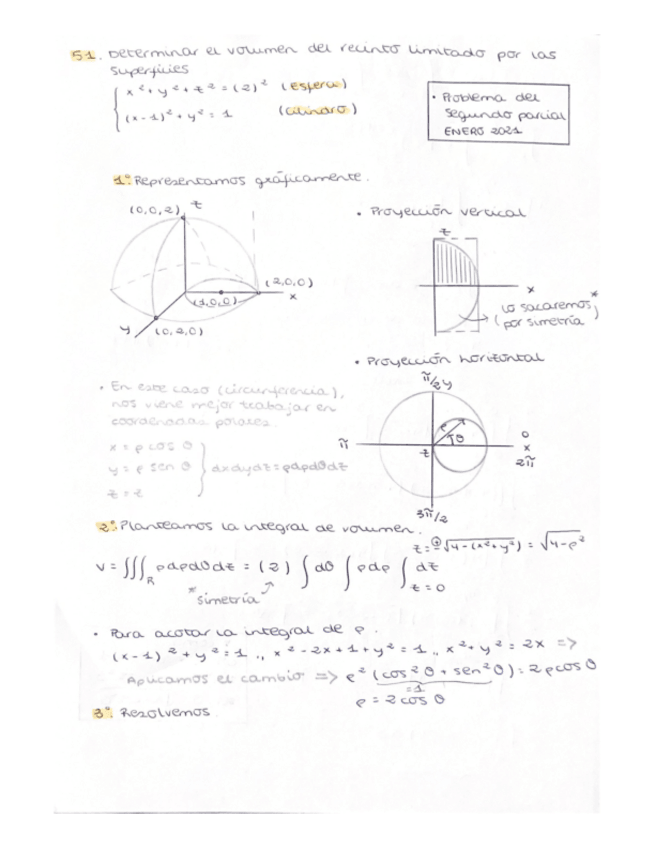 51. Determinar el volumen del recinto limitado por las
superficies
x²+y²+z²=(2)² (esfera)
(x-1)²+y²=1 (cilindro)
· Problema del
segundo parcial
ENERO 2021
1º Representamos gráficamente.
(0,0,2) z
(2,0,0)
x
(1,0,0)
y (0,2,0)
· Proyección vertical
z
x
lo sacaremos *
(por simetría)
· Proyección horizontal
π/2 y
π
ρ
θ
0
x
2π
z
3π/2
· En este caso (circunferencia),
nos viene mejor trabajar en
coordenadas polares.
x = ρ cos θ
y = ρ sen θ } dxdydz = ρdρdθdz
z = z
2º Planteamos la integral de volumen.
z = ⊕√4-(x²+y²) = √4-ρ²
V = ∭R ρdρdθdz = (2) ∫ dθ ∫ ρdρ ∫ dz
z=0
* simetría
· Para acotar la integral de ρ.
(x-1)²+y²=1 ,, x²-2x+1+y²=1 ,, x²+y²=2x =>
Aplicamos el cambio => ρ²(cos²θ+sen²θ)=2ρcosθ
=1
ρ = 2cosθ
3º Resolvemos